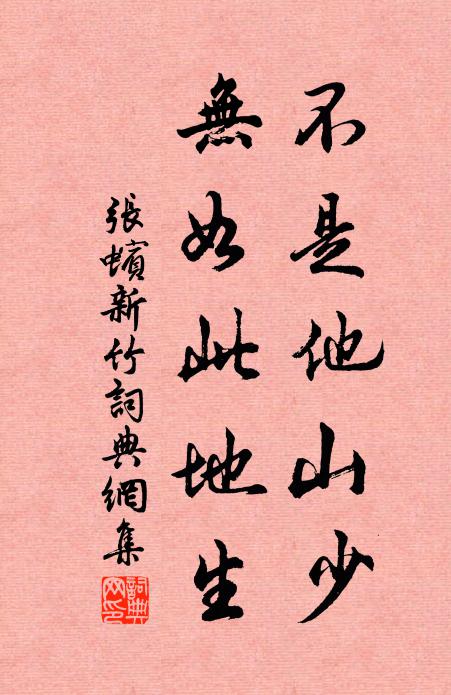 不是他山少
無如此地生
張蠙新竹詞典網集
詞典網印